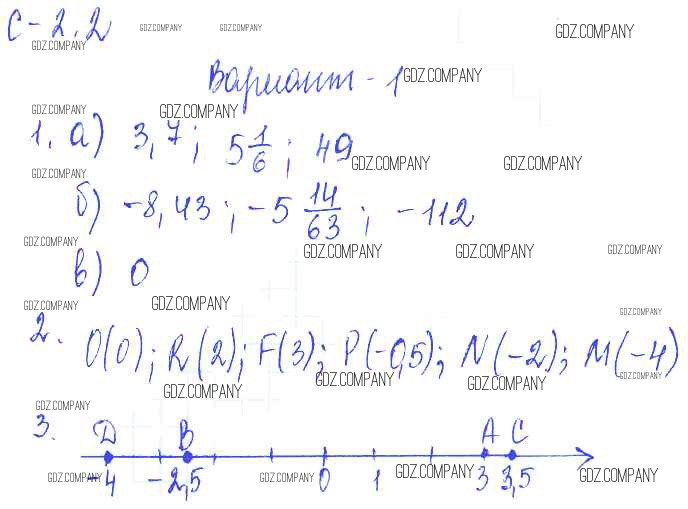 С-2.2
GDZ.COMPANY GDZ.COMPANY GDZ.COMPANY GDZ.COMPANY
Вариант-1 GDZ.COMPANY
GDZ.COMPANY GDZ.COMPANY
1. а) 3,7; 5 1/6; 49
GDZ.COMPANY GDZ.COMPANY GDZ.COMPANY
б) -8,43; -5 14/63; -112
GDZ.COMPANY GDZ.COMPANY GDZ.COMPANY GDZ.COMPANY
в) 0
GDZ.COMPANY GDZ.COMPANY GDZ.COMPANY
2. O(0); R(2); F(3); P(-0,5); N(-2); M(-4)
GDZ.COMPANY GDZ.COMPANY GDZ.COMPANY GDZ.COMPANY
GDZ.COMPANY
3. D B A C
-4 -2,5 0 1 3 3,5
GDZ.COMPANY GDZ.COMPANY GDZ.COMPANY GDZ.COMPANY